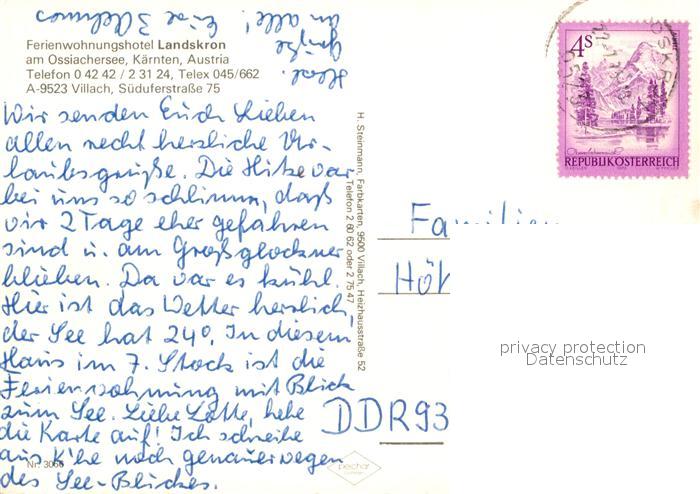 Ferienwohnungshotel Landskron
am Ossiachersee, Kärnten, Austria
Telefon 0 42 42 / 2 31 24, Telex 045/662
A-9523 Villach, Süduferstraße 75
Wir senden Euch Lieben
allen recht herzliche Ur-
laubsgrüße. Die Hitze war
bei uns so schlimm, daß
wir 2 Tage eher gefahren
sind u. am Großglockner
blieben. Da war es kühl.
Hier ist das Wetter herrlich,
der See hat 24°. In diesem
Haus im 7. Stock ist die
Ferienwohnung mit Blick
zum See. Liebe Lotte, hebe
die Karte auf! Ich schreibe
aus K'he noch genauer wegen
des See-Blickes.
Herzl.
Grüße
an alle! Eure 3
Nr. 3066
H. Steinmann, Farbkarten, 9500 Villach, Heizhausstraße 52
Telefon 2 60 62 oder 2 75 47
4S
REPUBLIK ÖSTERREICH
Familien
DDR 93
pechar
privacy protection
Datenschutz